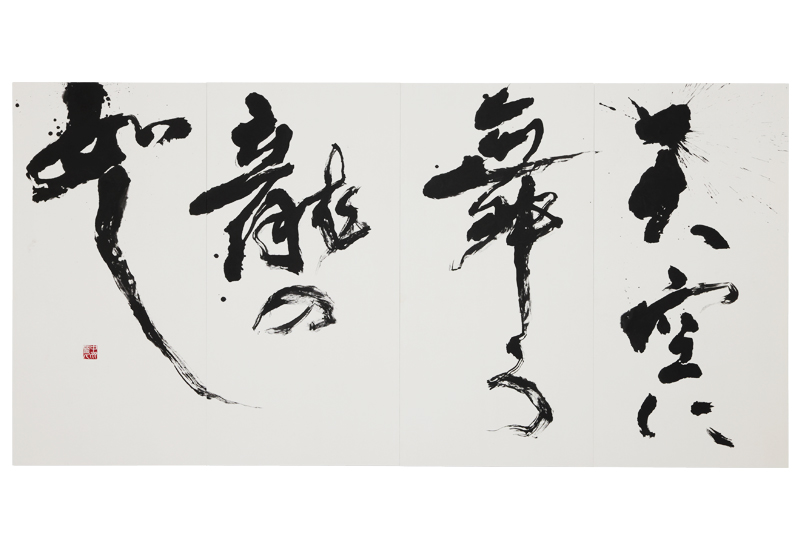 天空に
舞う
龍の
如し